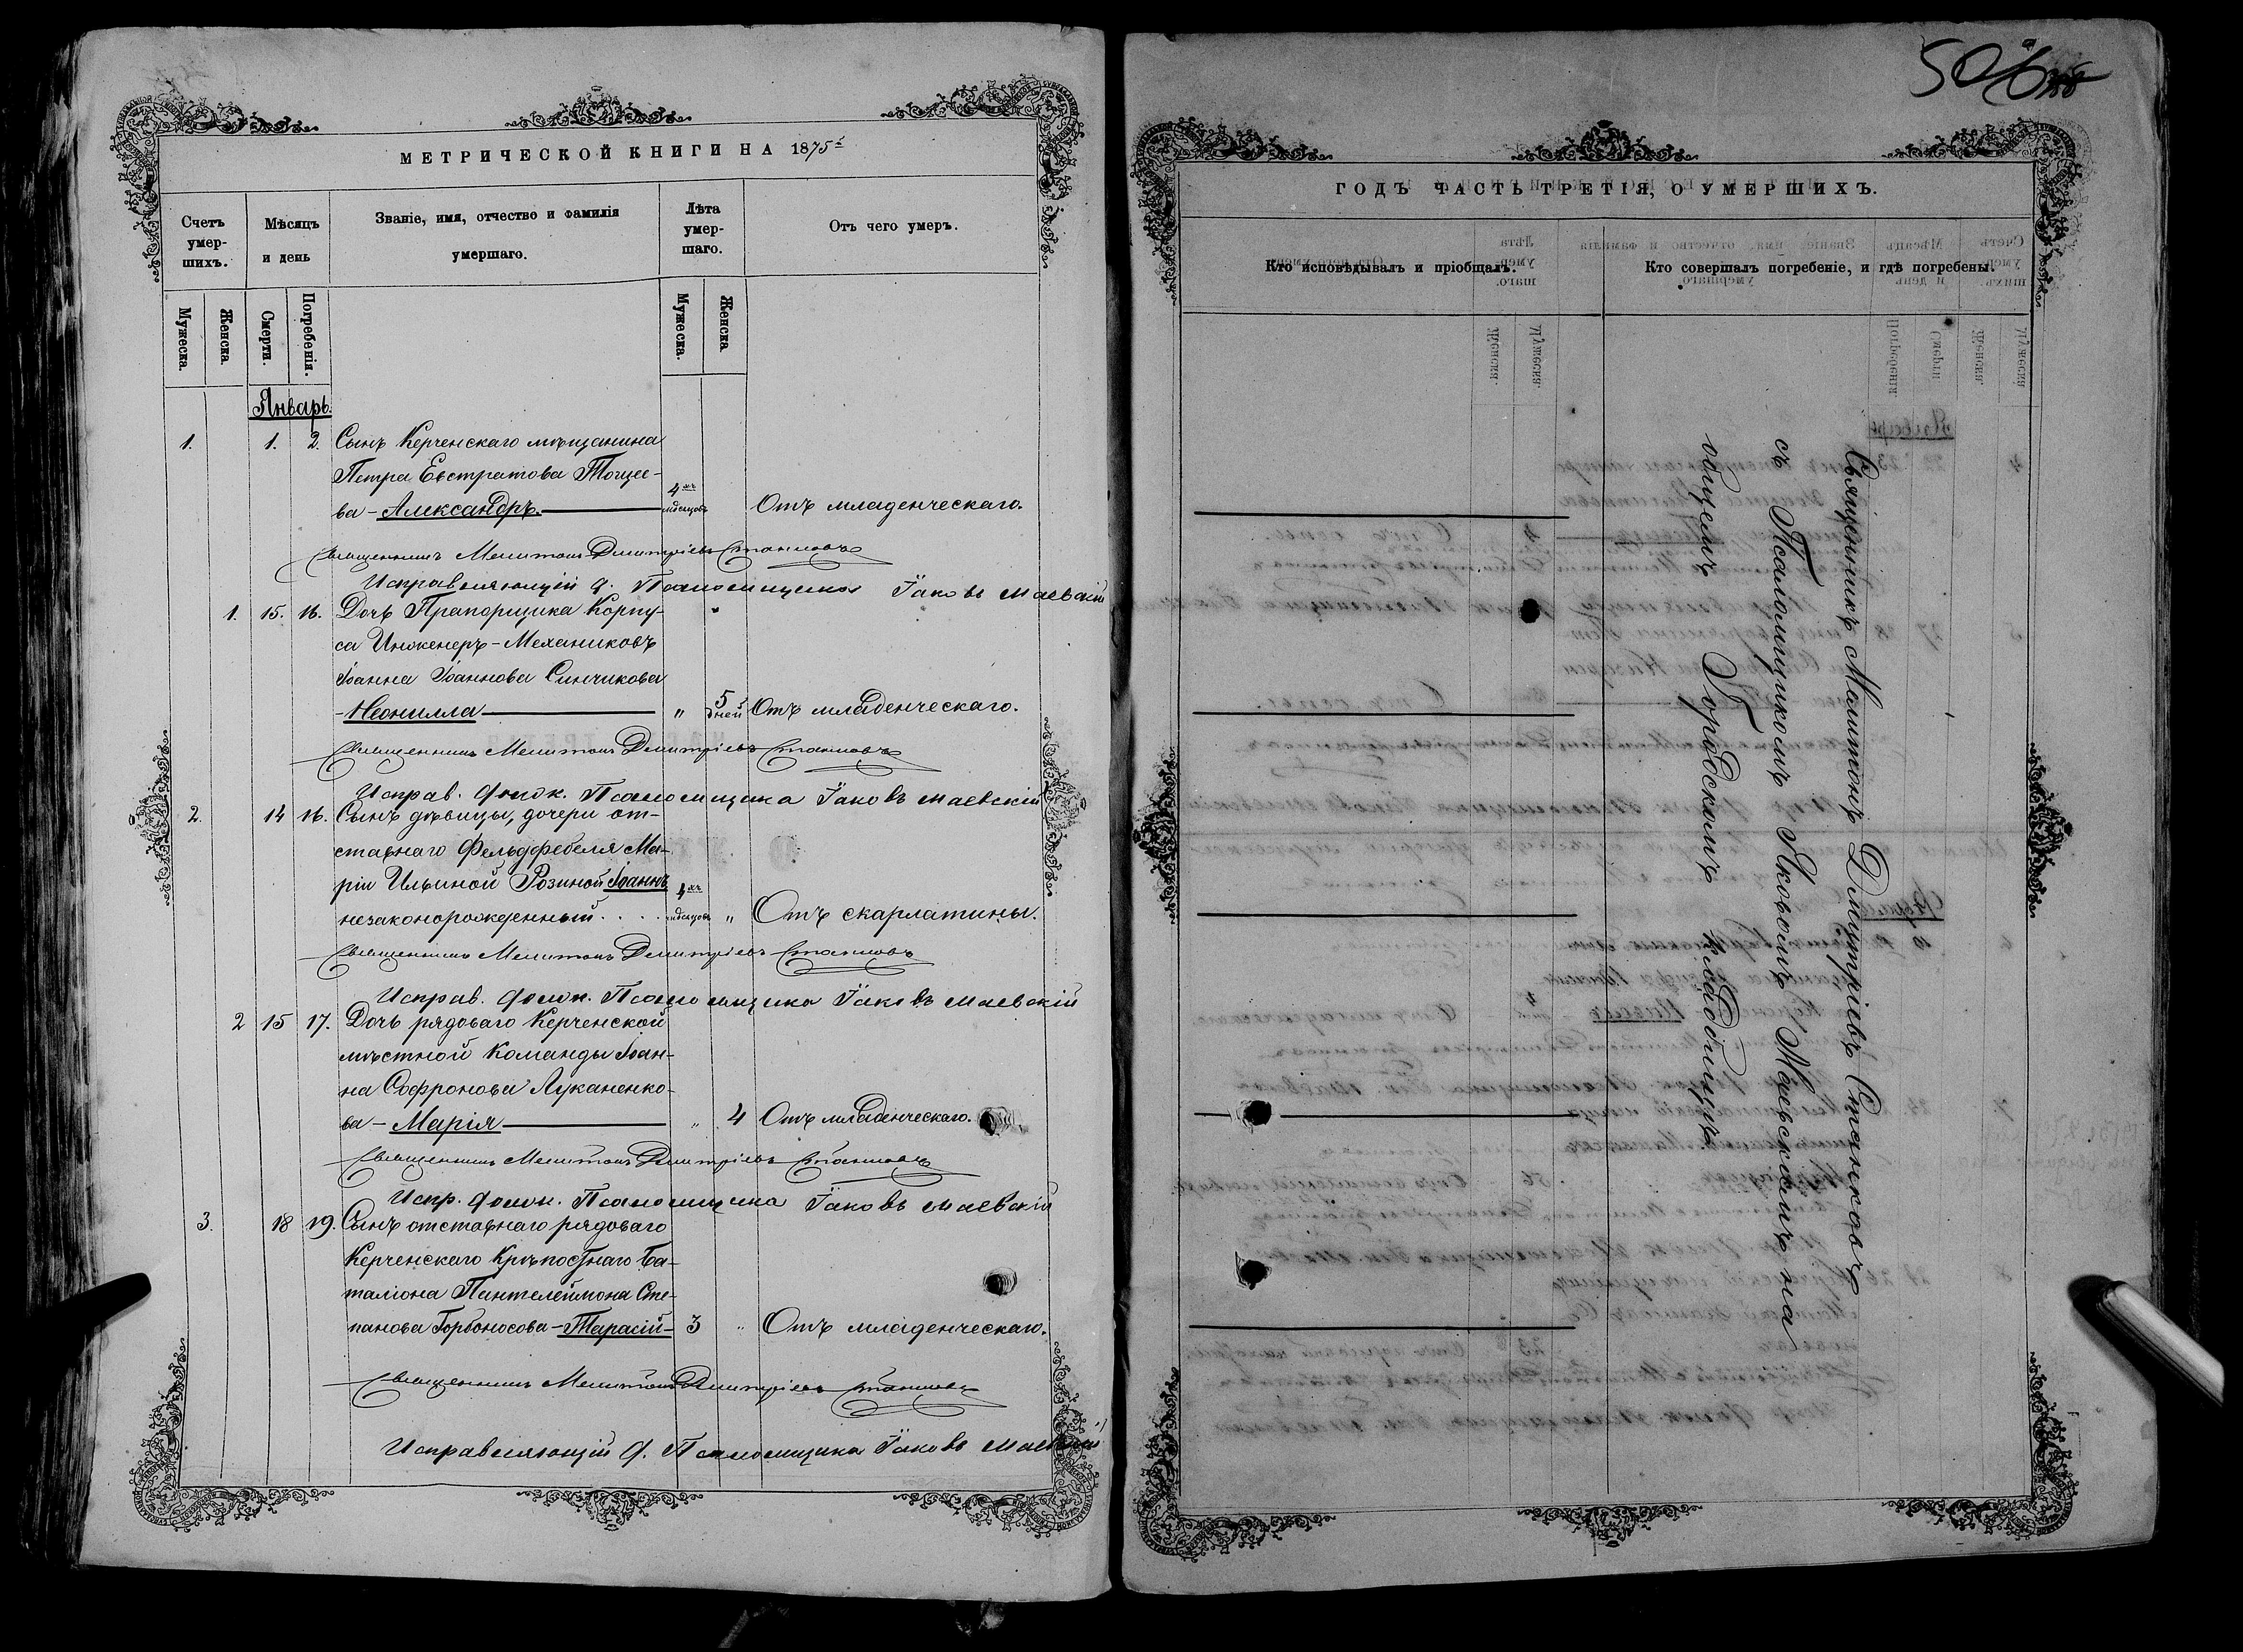 МЕТРИЧЕСКОЙ КНИГИ НА 1875
Счетъ умер-шихъ.
Мѣсяцъ и день
Званіе, имя, отчество и фамилія умершаго.
Лѣта умер-шаго.
Отъ чего умеръ.
Мужеска.
Женска.
Смерти.
Погребенія.
Мужеска.
Женска.
Январь.
1. 1. 2. Сынъ Керченскаго мѣщанина
Петра Евстратова
ва - Александръ. 4хъ мѣсяцовъ Отъ младенческаго.
Священникъ Мелитонъ Дмитріевъ Станковъ
Исправляющій д. Псаломщика Іаковъ Маевскій
1. 15. 16. Дочь Прапорщика Корпу-
са Инженеръ-Механиковъ
Іоанна Іоаннова Синчикова
- Неонилла " 5 дней Отъ младенческаго.
Священникъ Мелитонъ Дмитріевъ Станковъ
Исправ. долж. Псаломщика Іаковъ Маевскій
2. 14 16. Сынъ дѣвицы, дочери от-
ставнаго Фельдфебеля Ма-
ріи Ильиной Розиной Іоаннъ
незаконорожденный . . . 4хъ мѣсяцовъ " Отъ скарлатины.
Священникъ Мелитонъ Дмитріевъ Станковъ
Исправ. должн. Псаломщика Іаковъ Маевскій
2 15 17. Дочь рядоваго Керченской
мѣстной команды Іоан-
на Софронова Луканенко-
ва - Марія " 4 Отъ младенческаго.
Священникъ Мелитонъ Дмитріевъ Станковъ
Испр. должн. Псаломщика Іаковъ Маевскій
3. 18 19. Сынъ отставнаго рядоваго
Керченскаго Крѣпостнаго Ба-
таліона Пантелеймона Сте-
панова Горбоносова - Тарасій - 3 " Отъ младенческаго.
Священникъ Мелитонъ Дмитріевъ Станковъ
Исправляющій д. Псаломщика Іаковъ Маевскій
ГОДЪ ЧАСТЬ ТРЕТІЯ, О УМЕРШИХЪ.
Кто исповѣдывалъ и пріобщалъ.
Кто совершалъ погребеніе, и гдѣ погребены.
Священникъ Мелитонъ Дмитріевъ Станковъ
съ Псаломщикомъ Яковомъ Маевскимъ на
общемъ Городскомъ кладбищѣ